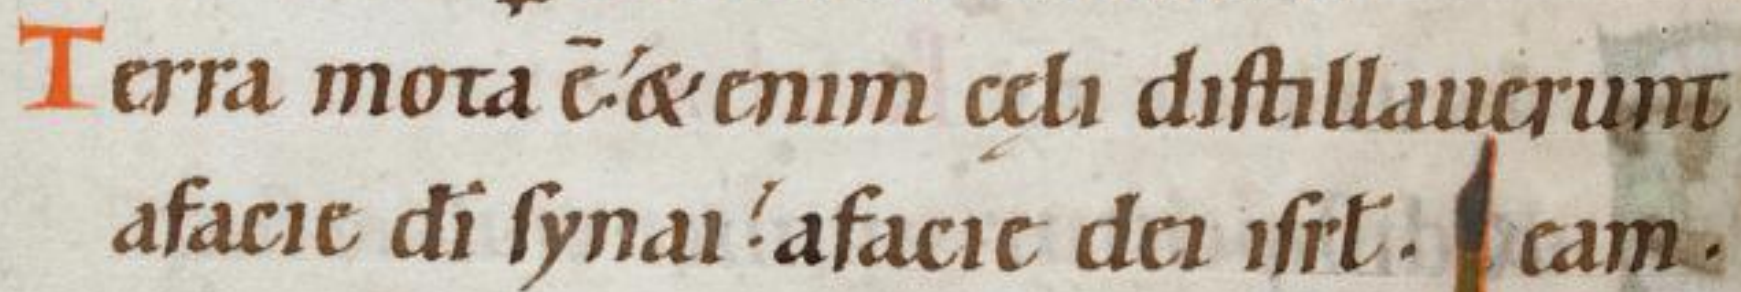 Terra mota ē.́ & enim cęli distillauerunt
afacie dī synai .́ afacie dei isrł . eam .